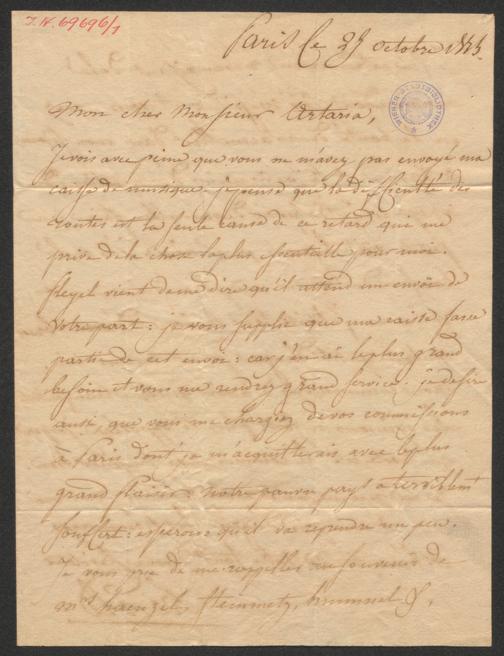 J.N. 69696/1
Paris le 29 octobre 1815.
WIENER STADTBIBLIOTHEK
Mon cher Monsieur Artaria,
Je vois avec peine que vous ne m'avez pas envoyé ma
caisse de musique. je pense que la difficulté des
routes est la seule cause de ce retard qui me
prive de la chose la plus essentielle pour moi.
Pleyel vient de me dire qu'il attend un envoi de
votre part: je vous supplie que ma caisse fasse
partie de cet envoi: car j'en ai le plus grand
besoin et vous me rendrez grand service. je desire
aussi, que vous me chargiez de vos commissions
à Paris dont je m'acquitterais avec le plus
grand plaisir. notre pauvre pays a terriblement
souffert: esperons qu'il va reprendre un peu.
Je vous prie de me rappeller au souvenir de
mrs Haenzel, Steinmetz, Hummel &.